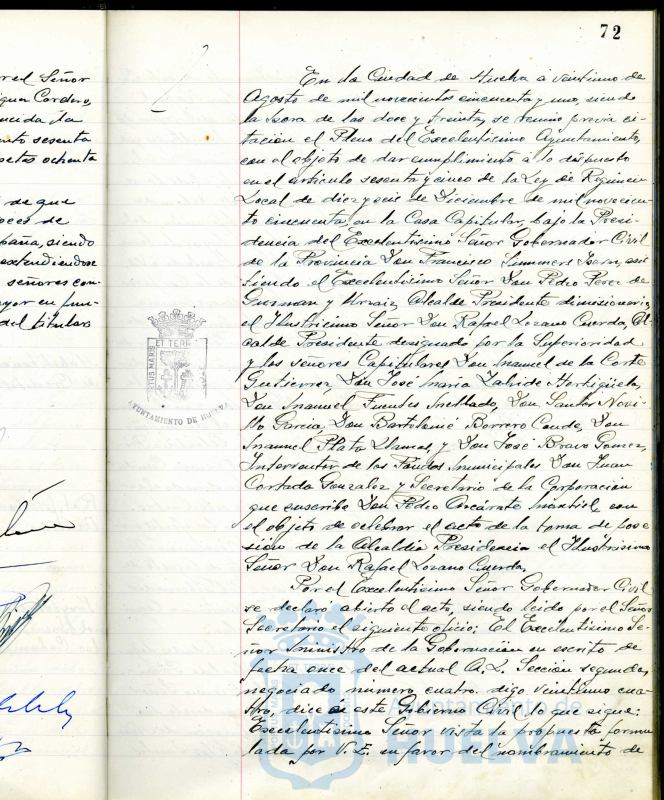 72
rred Señor
Cordero,
ncida la
nto sesenta
setas ochenta
de que
poco de
paña, siendo
extendiendose
señores con-
yor en fun-
del titular
En la Ciudad de Huelva a veintiuno de
Agosto de mil novecientos cincuenta y uno, siendo
la hora de las doce y treinta, se reunio previa ci-
tación el Pleno del Excelentisimo Ayuntamiento,
con el objeto de dar cumplimiento á lo dispuesto
en el articulo sesenta y cinco de la Ley de Regimen
Local de diez y seis de Diciembre de mil novecien-
to cincuenta, en la Casa Capitular, bajo la Presi-
dencia del Excelentisimo Señor Gobernador Civil
de la Provincia Don Francisco Summers Isern, asis
tiendo el Excelentisimo Señor Don Pedro Perez de
Guzman y Urzaiz, Alcalde Presidente dimisionario,
el Ilustrisimo Señor Don Rafael Lozano Cuerda, Al-
calde Presidente designado por la Superioridad
y los señores Capitulares Don Manuel de la Corte
Gutierrez, Don José Maria Lahide Hortigüela,
Don Manuel Fuentes Mellado, Don Santos Novi-
llo Garcia, Don Bartolomé Borrero Conde, Don
Manuel Plata Llamas, y Don José Bravo Gomez,
Interventor de los Fondos Municipales Don Juan
Cortada Gonzalez y Secretario de la Corporación
que suscribe Don Pedro Ascárate Montiel, con
el objeto de celebrar el acto de la toma de pose
sión de la Alcaldia Presidencia el Ilustrisimo
Señor Don Rafael Lozano Cuerda.
Por el Excelentisimo Señor Gobernador Civil
se declaro abierto el acto, siendo leido por el Señor
Secretario el siguiente oficio: El Excelentisimo Se-
ñor Ministro de la Gobernación en escrito de
fecha once del actual A.L. Sección segunda,
negociado número cuatro. digo veintiuno cua-
tro, dice a este Gobierno Civil lo que sigue:
Excelentisimo Señor vista la propuesta formu
lada por V.E. en favor del nombramiento de
AYUNTAMIENTO DE HUELVA
Ayuntamiento de
HUELVA